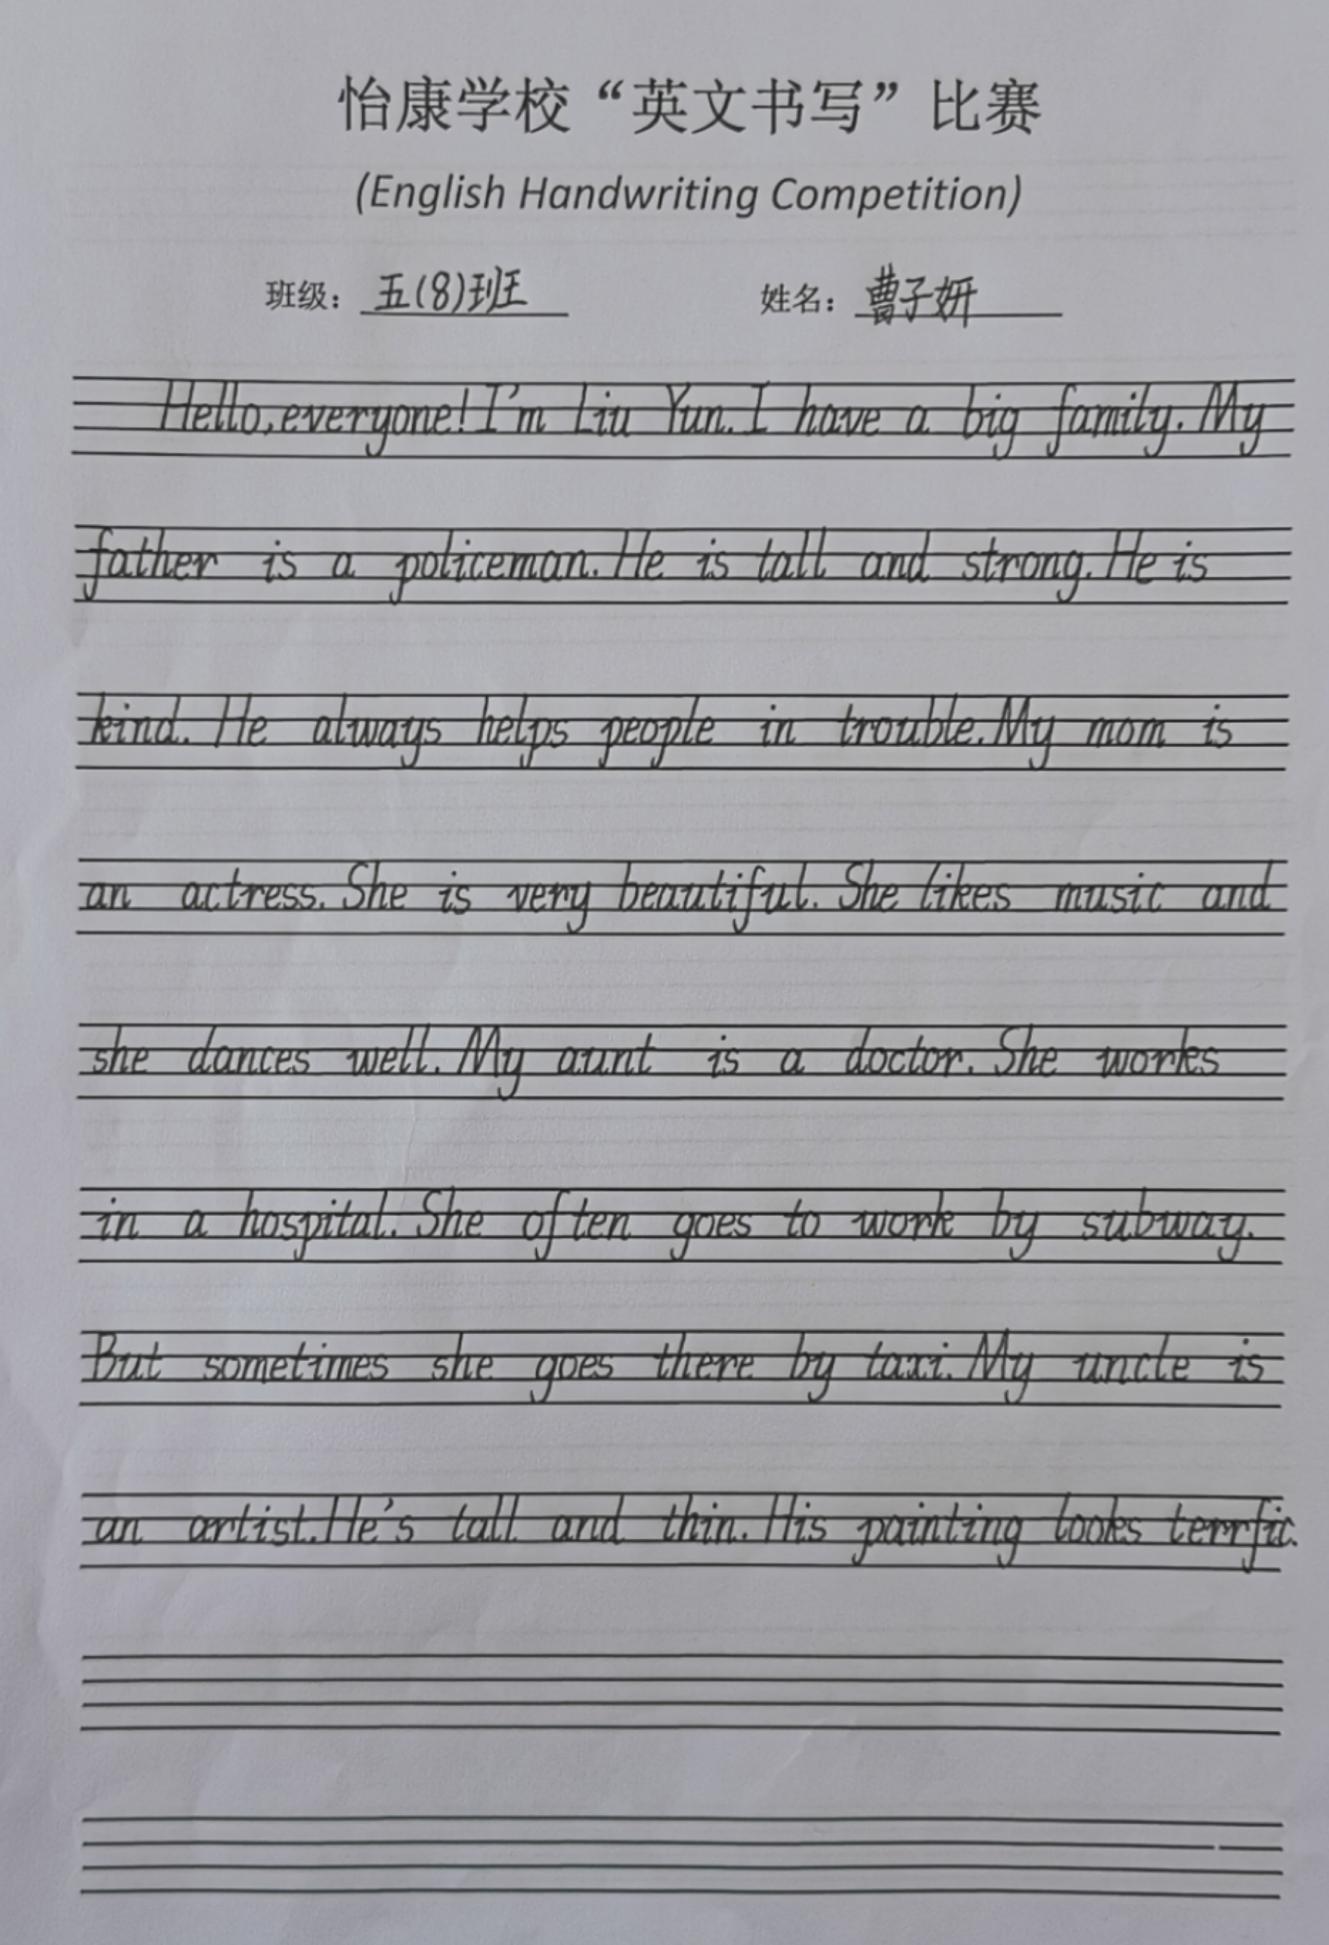 怡康学校“英文书写”比赛
(English Handwriting Competition)
班级： 五(8)班 姓名： 曹子妍
Hello,everyone! I'm Liu Yun. I have a big family. My
father is a policeman. He is tall and strong. He is
kind. He always helps people in trouble. My mom is
an actress. She is very beautiful. She likes music and
she dances well. My aunt is a doctor. She works
in a hospital. She often goes to work by subway.
But sometimes she goes there by taxi. My uncle is
an artist. He's tall and thin. His painting looks terrfic.